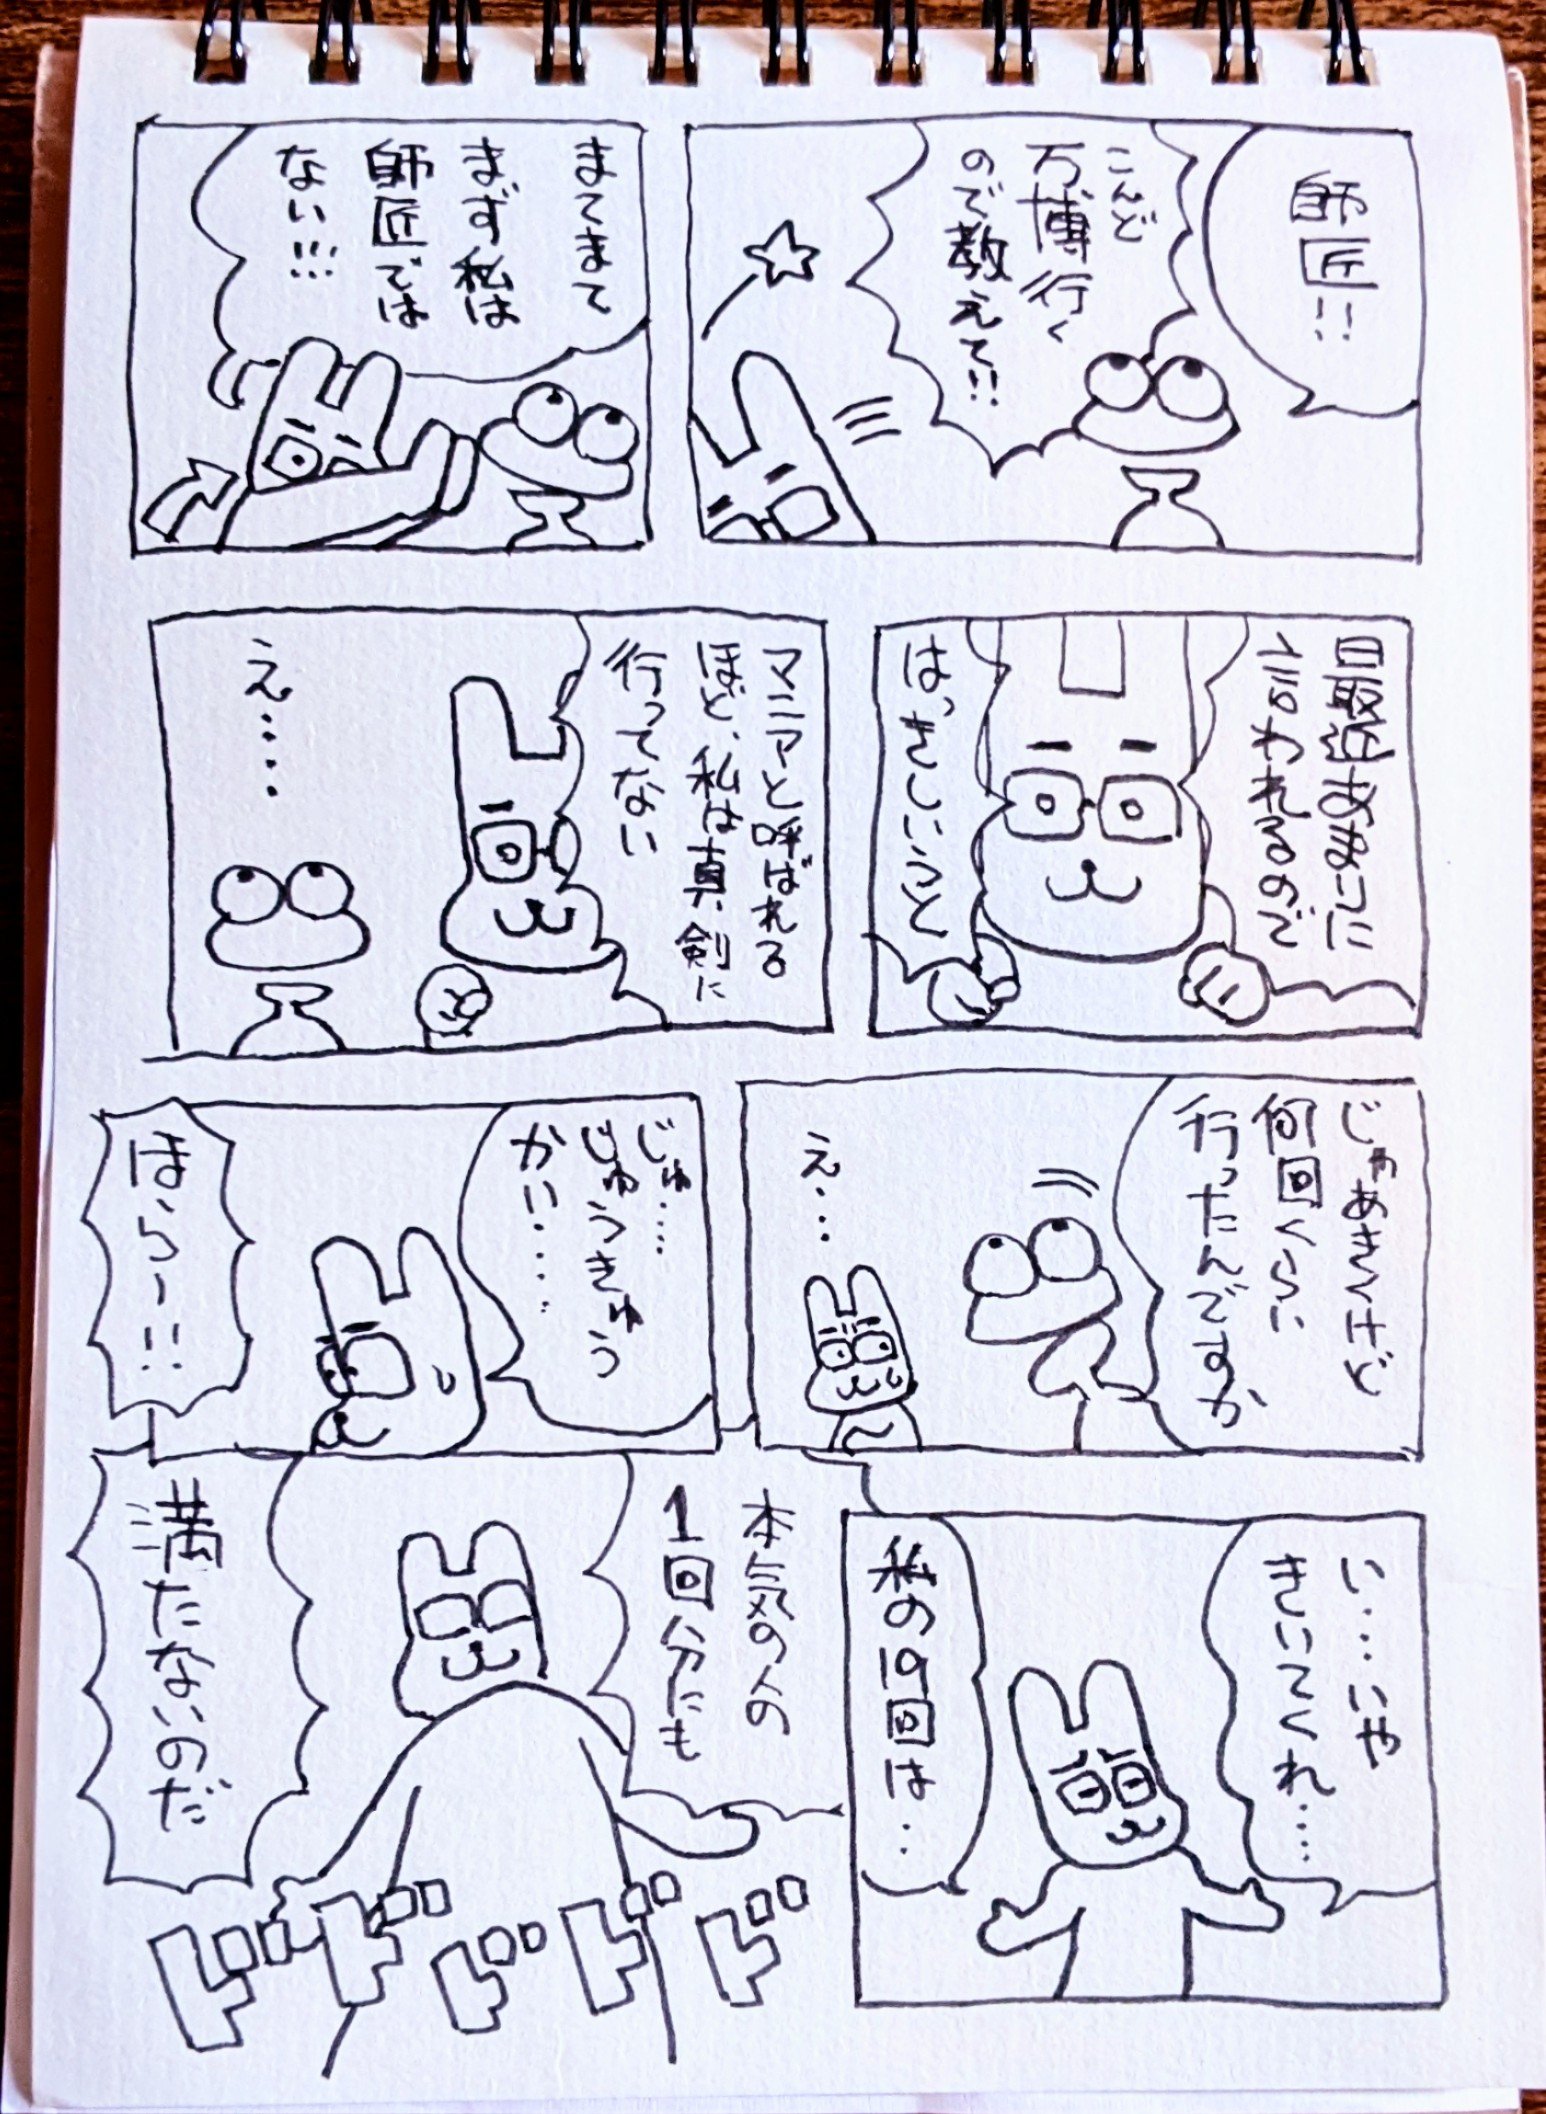 師匠!!
こんど
万博行く
ので教えて!!
まてまて
まず私は
師匠では
ない!!!
われるので
はっきしいうと
マニアと呼ばれる
ほど、私は真剣に
行ってない
え....
じゃあきくけど
何回くらい
行ったんですか
え...
じゅ....
じゅうきゅう
かい....
ほらー!!
い...いや
きいてくれ....
私の19回は..
本気の人の
1回分にも
満たないのだ
ドドドドド